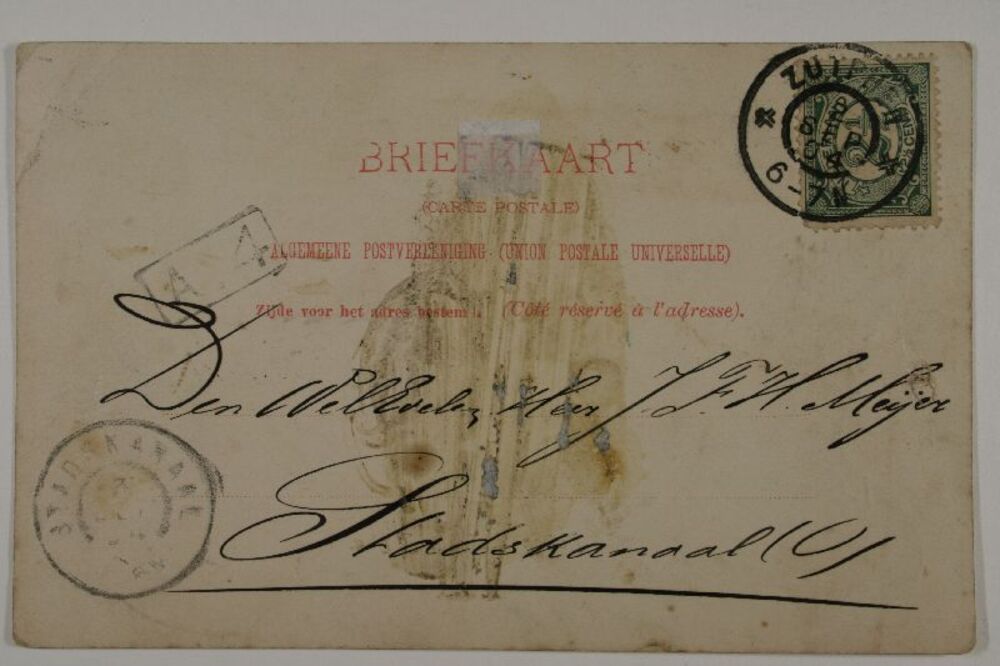 ZUTPHEN
6-7N
BRIEFKAART
(CARTE POSTALE)
ALGEMEENE POSTVEREENIGING (UNION POSTALE UNIVERSELLE)
A 4
Zijde voor het adres bestemd. (Côté réservé à l'adresse).
Den WelEdelen Heer J. F. H. Meijer
STADSKANAAL
Stadskanaal (O)